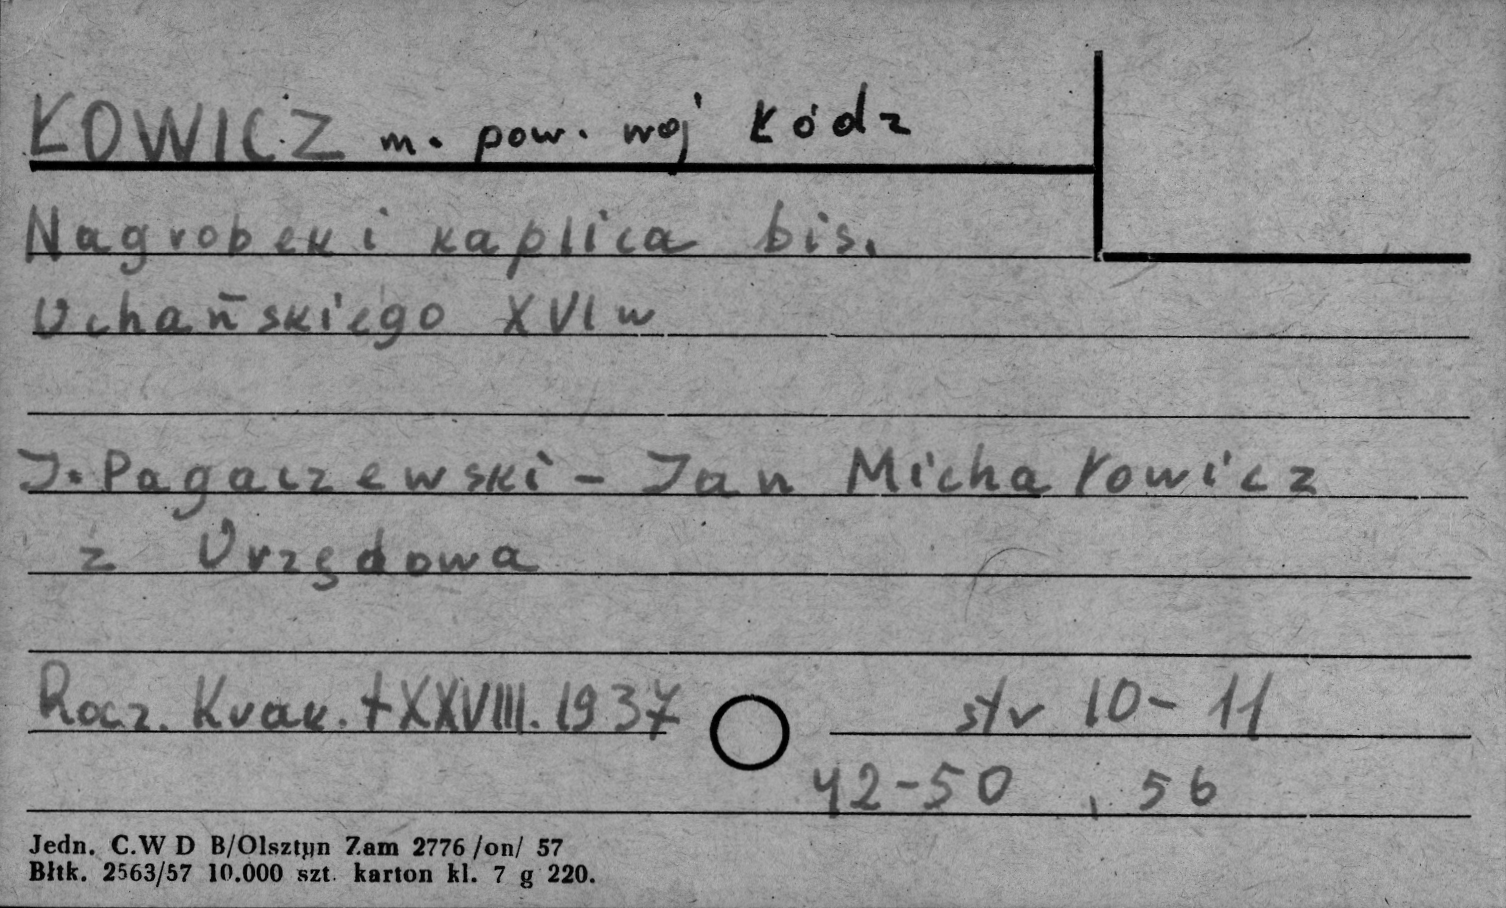 ŁOWICZ m. pow. woj Łódz
Nagrobek i kaplica bis.
Uchańskiego XVI w
J. Pagaczewski - Jan Michałowicz
z Urzędowa
Rocz. Krak. t XXVIII. 1937 str 10-11
42-50, 56
Jedn. C.W D B/Olsztyn Zam 2776 /on/ 57
Błtk. 2563/57 10.000 szt. karton kl. 7 g 220.